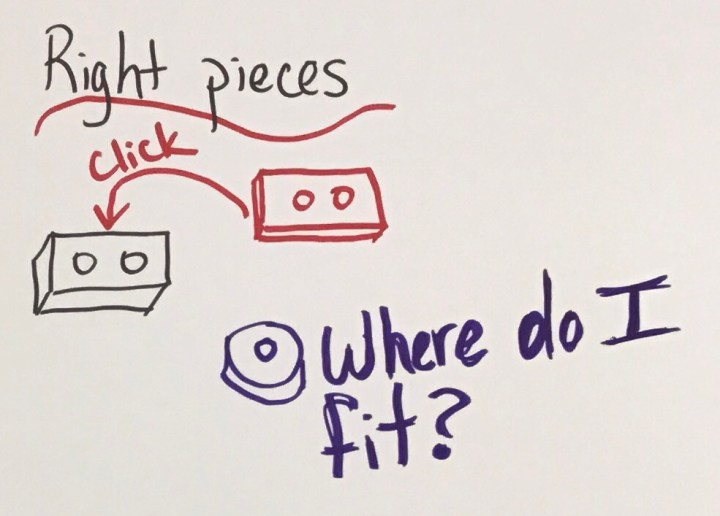 Right pieces
click
Where do I
fit?